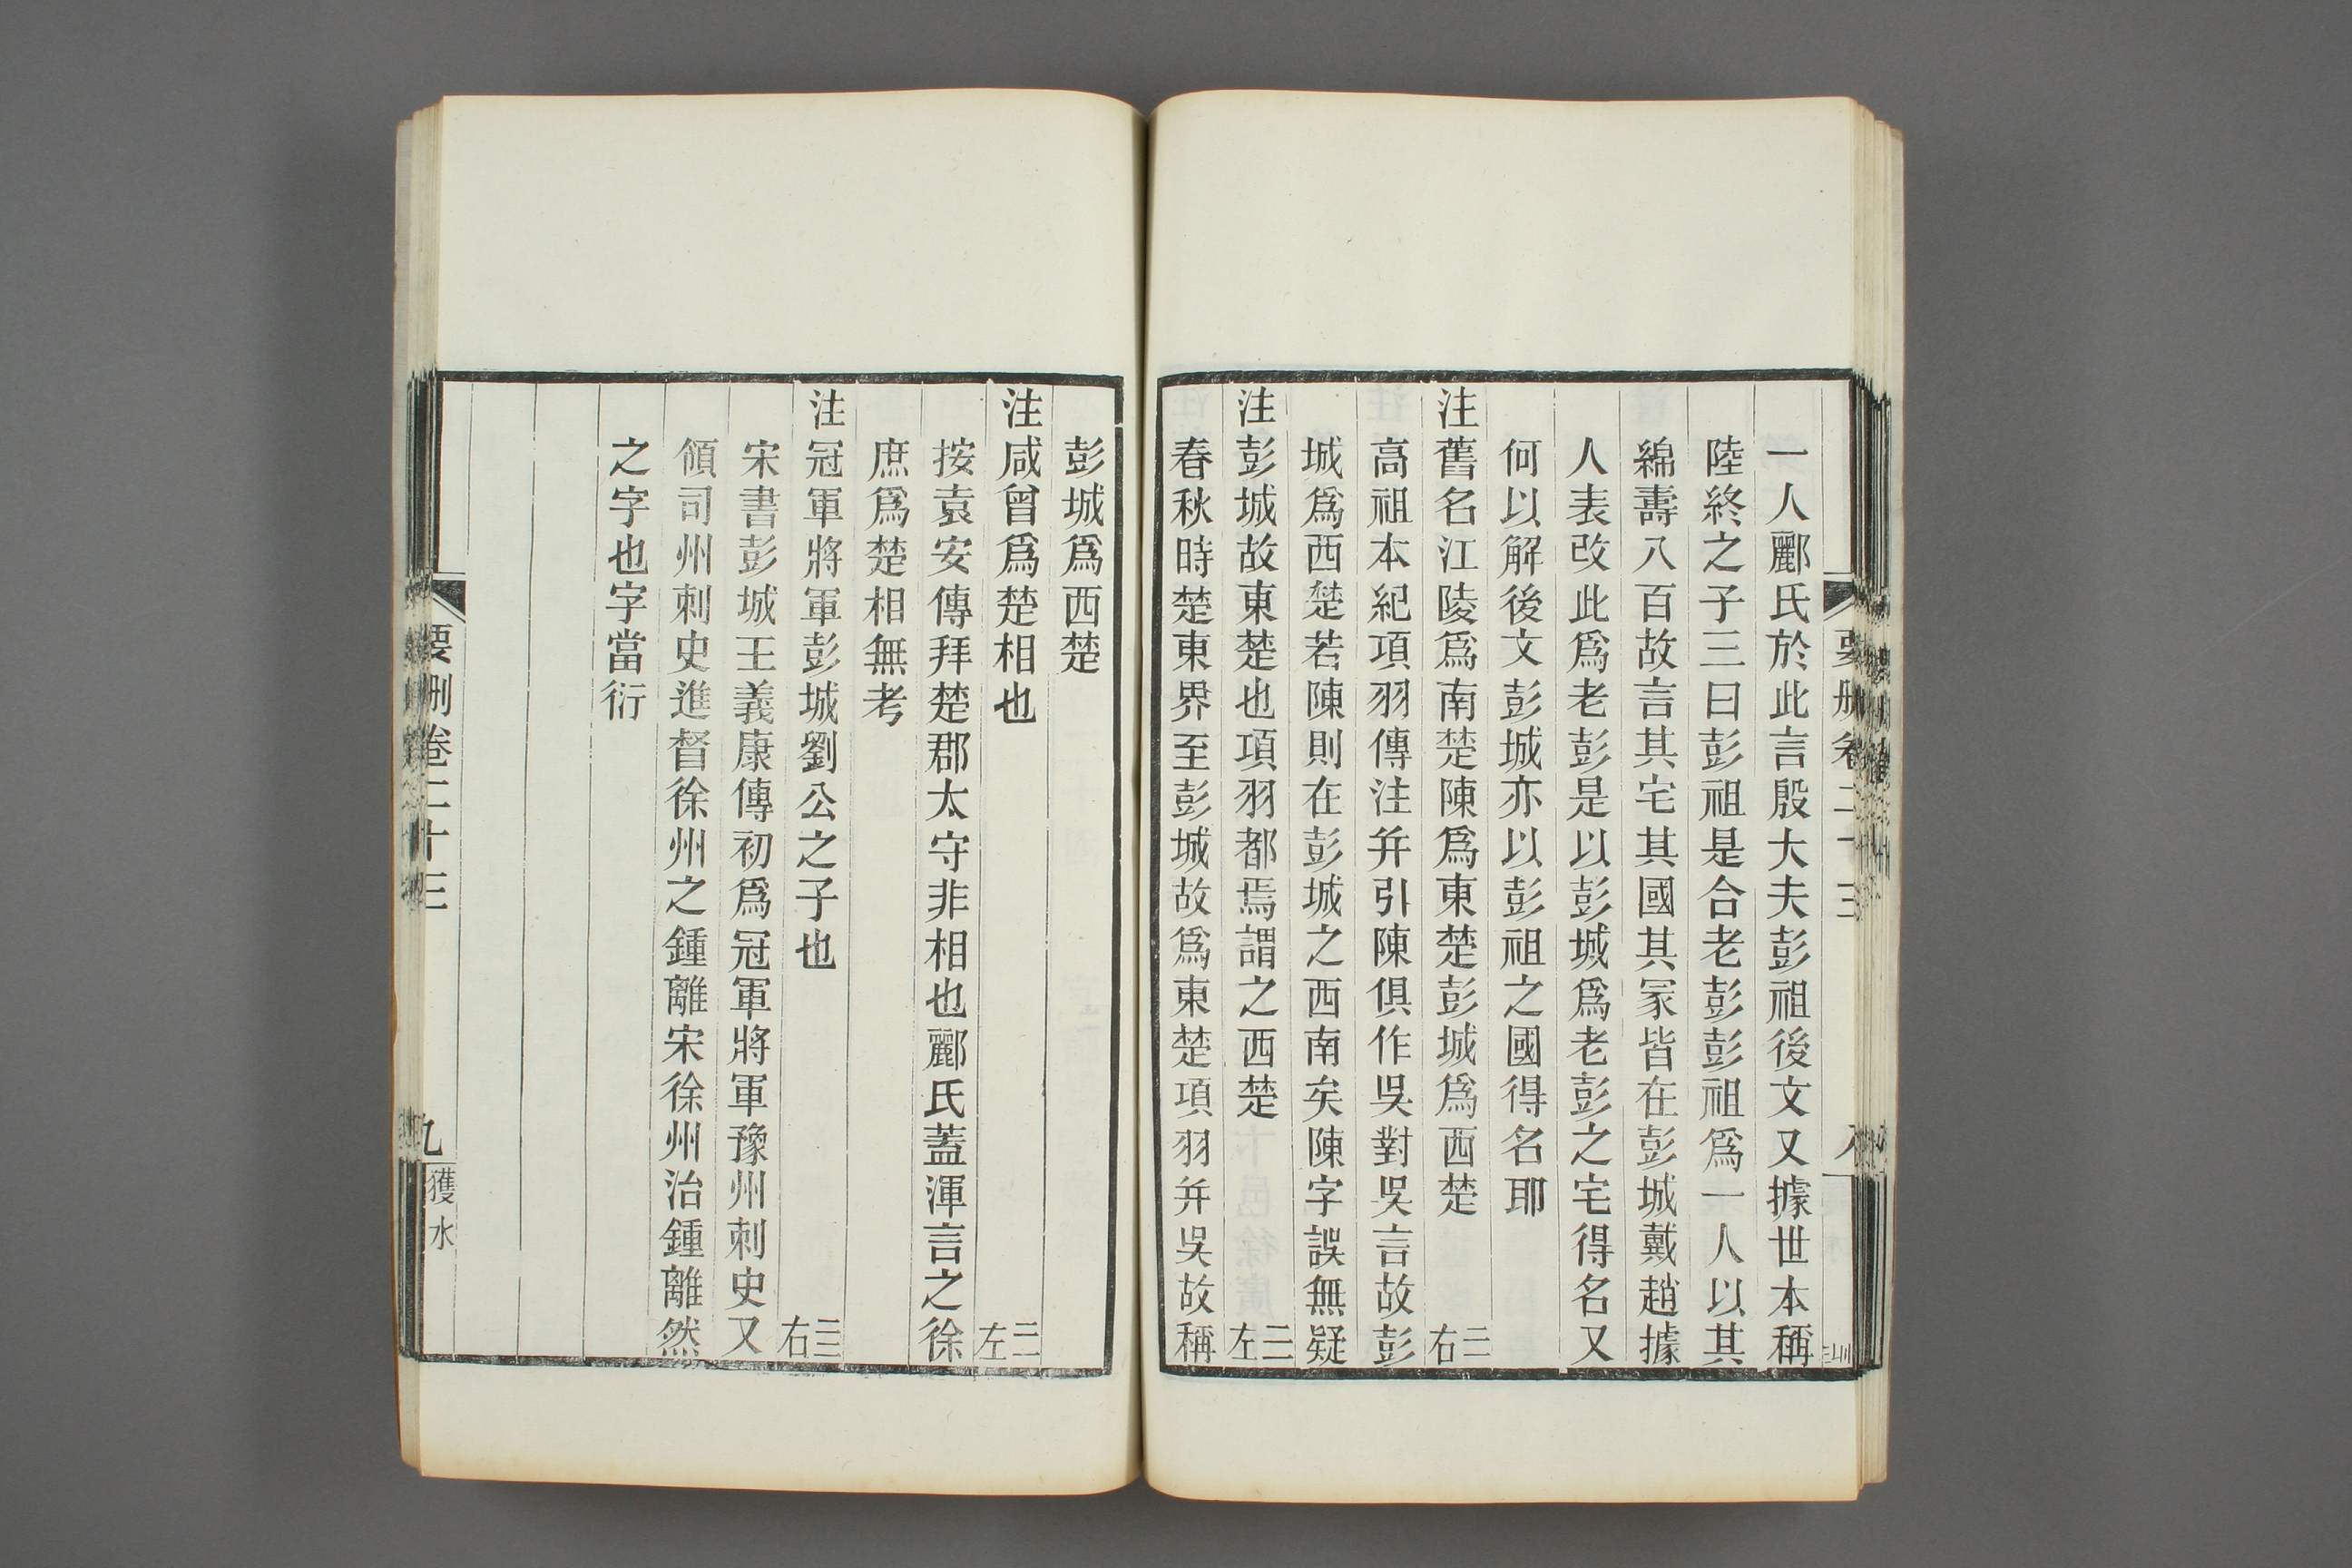 一人酈氏於此言殷大夫彭祖後文又據世本稱
陸終之子三曰彭祖是合老彭彭祖爲一人以其
綿壽八百故言其宅其國其冢皆在彭城戴趙據
人表改此爲老彭是以彭城爲老彭之宅得名又
何以解後文彭城亦以彭祖之國得名耶
注舊名江陵爲南楚陳爲東楚彭城爲西楚 二右
高祖本紀項羽傳注幷引陳俱作吳對吳言故彭
城爲西楚若陳則在彭城之西南矣陳字誤無疑
注彭城故東楚也項羽都焉謂之西楚 二二左
春秋時楚東界至彭城故爲東楚項羽幷吳故稱
彭城爲西楚
注咸曾爲楚相也 二二左
按袁安傳拜楚郡太守非相也酈氏蓋渾言之徐
庶爲楚相無考
注冠軍將軍彭城劉公之子也 二三右
宋書彭城王義康傳初爲冠軍將軍豫州刺史又
領司州刺史進督徐州之鍾離宋徐州治鍾離然
之字也字當衍
要刪卷二十三
九
獲水